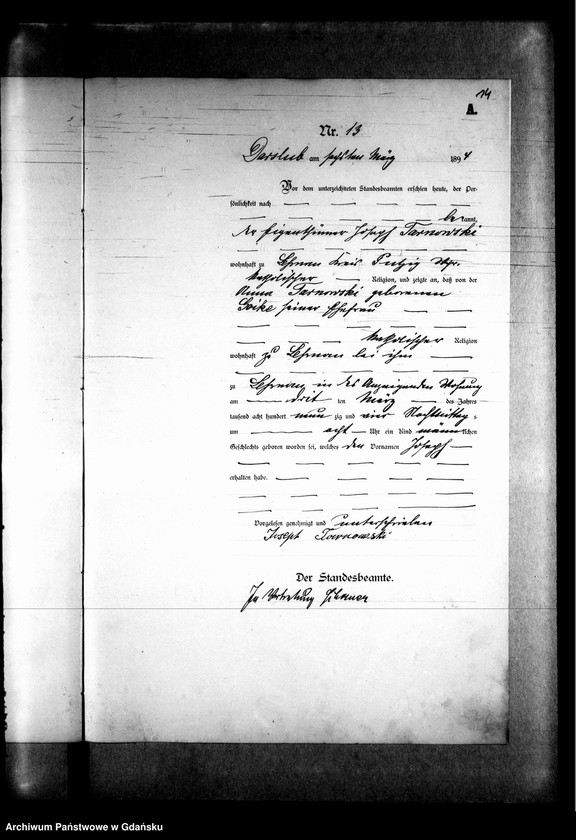 14
A.
Nr. 13
Darslub am sechsten März 1894
Vor dem unterzeichneten Standesbeamten erschien heute, der Per-
sönlichkeit nach
bekannt,
der Eigenthümer Joseph Tarnowski
wohnhaft zu Lehnau Kreis Putzig Wpr.
katholischer Religion, und zeigte an, daß von der
Anna Tarnowski geborenen
Soike seiner Ehefrau
katholischer Religion
wohnhaft zu Lehnau bei ihm
zu Lehnau in des Anzeigenden Wohnung
am dritten März des Jahres
tausend acht hundert neunzig und vier Nachmittags
um acht Uhr ein Kind männlichen
Geschlechts geboren worden sei, welches den Vornamen Joseph
erhalten habe.
Vorgelesen genehmigt und unterschrieben
Joseph Tarnowski
Der Standesbeamte.
In Vertretung
Archiwum Państwowe w Gdańsku